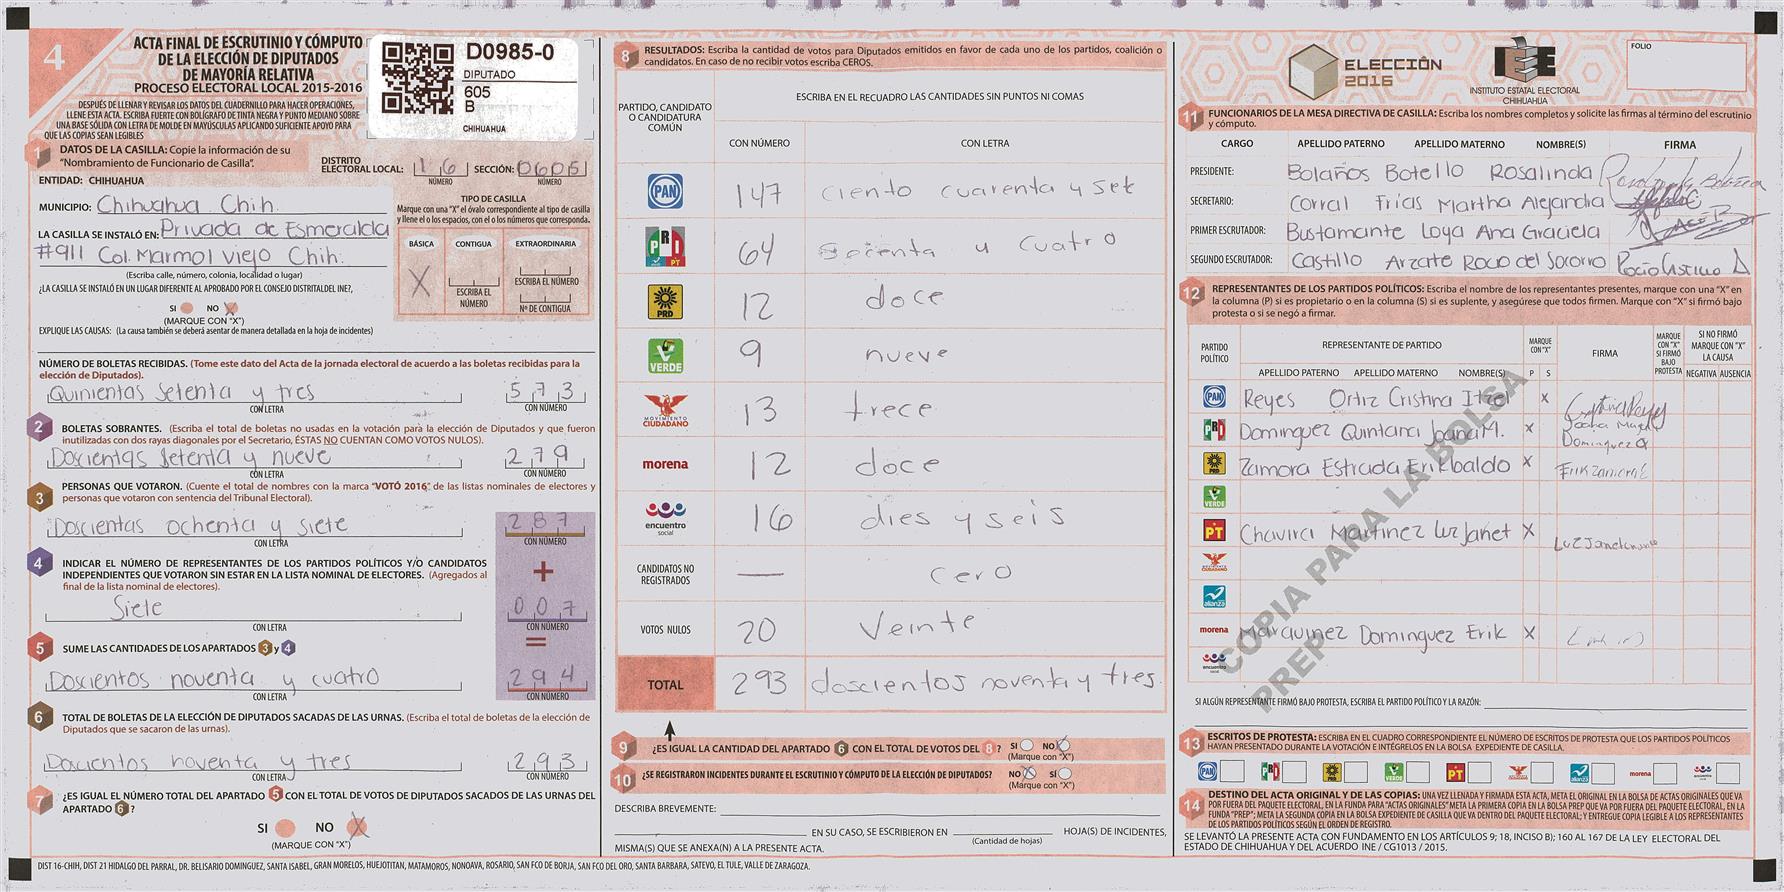 4
ACTA FINAL DE ESCRUTINIO Y CÓMPUTO
DE LA ELECCIÓN DE DIPUTADOS
DE MAYORÍA RELATIVA
PROCESO ELECTORAL LOCAL 2015-2016
DESPUÉS DE LLENAR Y REVISAR LOS DATOS DEL CUADERNILLO PARA HACER OPERACIONES,
LLENE ESTA ACTA. ESCRIBA FUERTE CON BOLÍGRAFO DE TINTA NEGRA Y PUNTO MEDIANO SOBRE
UNA BASE SÓLIDA CON LETRA DE MOLDE EN MAYÚSCULAS APLICANDO SUFICIENTE APOYO PARA
QUE LAS COPIAS SEAN LEGIBLES
D0985-0
DIPUTADO
605
B
CHIHUAHUA
1 DATOS DE LA CASILLA: Copie la información de su
"Nombramiento de Funcionario de Casilla".
DISTRITO
ELECTORAL LOCAL: 16 SECCIÓN: 0605
NÚMERO NÚMERO
ENTIDAD: CHIHUAHUA
MUNICIPIO: Chihuahua Chih.
LA CASILLA SE INSTALÓ EN: Privada de Esmeralda
#911 Col. Marmol Viejo Chih.
(Escriba calle, número, colonia, localidad o lugar)
¿LA CASILLA SE INSTALÓ EN UN LUGAR DIFERENTE AL APROBADO POR EL CONSEJO DISTRITAL DEL INE,
SI NO X
(MARQUE CON "X")
EXPLIQUE LAS CAUSAS: (La causa también se deberá asentar de manera detallada en la hoja de incidentes)
TIPO DE CASILLA
Marque con una "X" el óvalo correspondiente al tipo de casilla
y llene el o los espacios, con el o los números que corresponda.
BÁSICA CONTIGUA EXTRAORDINARIA
X
ESCRIBA EL NÚMERO
ESCRIBA EL NÚMERO
Nº DE CONTIGUA
NÚMERO DE BOLETAS RECIBIDAS. (Tome este dato del Acta de la jornada electoral de acuerdo a las boletas recibidas para la
elección de Diputados).
Quinientas Setenta y tres 573
CON LETRA CON NÚMERO
2 BOLETAS SOBRANTES. (Escriba el total de boletas no usadas en la votación para la elección de Diputados y que fueron
inutilizadas con dos rayas diagonales por el Secretario, ÉSTAS NO CUENTAN COMO VOTOS NULOS).
Doscientas Setenta y nueve 279
CON LETRA CON NÚMERO
3 PERSONAS QUE VOTARON. (Cuente el total de nombres con la marca "VOTÓ 2016" de las listas nominales de electores y
personas que votaron con sentencia del Tribunal Electoral).
Doscientas ochenta y siete 287
CON LETRA CON NÚMERO
4 INDICAR EL NÚMERO DE REPRESENTANTES DE LOS PARTIDOS POLÍTICOS Y/O CANDIDATOS
INDEPENDIENTES QUE VOTARON SIN ESTAR EN LA LISTA NOMINAL DE ELECTORES. (Agregados al
final de la lista nominal de electores).
+
Siete 007
CON LETRA CON NÚMERO
=
5 SUME LAS CANTIDADES DE LOS APARTADOS 3 y 4
Doscientos noventa y cuatro 294
CON LETRA CON NÚMERO
6 TOTAL DE BOLETAS DE LA ELECCIÓN DE DIPUTADOS SACADAS DE LAS URNAS. (Escriba el total de boletas de la elección de
Diputados que se sacaron de las urnas).
Doscientos noventa y tres 293
CON LETRA CON NÚMERO
7 ¿ES IGUAL EL NÚMERO TOTAL DEL APARTADO 5 CON EL TOTAL DE VOTOS DE DIPUTADOS SACADOS DE LAS URNAS DEL
APARTADO 6?
SI NO X
(MARQUE CON "X")
DIST 16-CHIH, DIST 21 HIDALGO DEL PARRAL, DR. BELISARIO DOMINGUEZ, SANTA ISABEL, GRAN MORELOS, HUEJOTITAN, MATAMOROS, NONOAVA, ROSARIO, SAN FCO DE BORJA, SAN FCO DEL ORO, SANTA BARBARA, SATEVO, EL TULE, VALLE DE ZARAGOZA.
8 RESULTADOS: Escriba la cantidad de votos para Diputados emitidos en favor de cada uno de los partidos, coalición o
candidatos. En caso de no recibir votos escriba CEROS.
PARTIDO, CANDIDATO
O CANDIDATURA
COMÚN
ESCRIBA EN EL RECUADRO LAS CANTIDADES SIN PUNTOS NI COMAS
CON NÚMERO CON LETRA
PAN 147 ciento cuarenta y set
PRI 64 y cuatro
PRD 12 doce
VERDE 9 nueve
MOVIMIENTO CIUDADANO 13 trece
morena 12 doce
encuentro social 16 dies y seis
CANDIDATOS NO
REGISTRADOS — cero
VOTOS NULOS 20 Veinte
TOTAL 293 doscientos noventa y tres
9 ¿ES IGUAL LA CANTIDAD DEL APARTADO 6 CON EL TOTAL DE VOTOS DEL 8? SI NO X
(Marque con "X")
10 ¿SE REGISTRARON INCIDENTES DURANTE EL ESCRUTINIO Y CÓMPUTO DE LA ELECCIÓN DE DIPUTADOS? NO X SI
(Marque con "X")
DESCRIBA BREVEMENTE:
EN SU CASO, SE ESCRIBIERON EN HOJA(S) DE INCIDENTES,
(Cantidad de hojas)
MISMA(S) QUE SE ANEXA(N) A LA PRESENTE ACTA.
ELECCIÓN
2016
IEE
INSTITUTO ESTATAL ELECTORAL
CHIHUAHUA
FOLIO
11 FUNCIONARIOS DE LA MESA DIRECTIVA DE CASILLA: Escriba los nombres completos y solicite las firmas al término del escrutinio
y cómputo.
CARGO APELLIDO PATERNO APELLIDO MATERNO NOMBRE(S) FIRMA
PRESIDENTE: Bolaños Botello Rosalinda
SECRETARIO: Corral Frias Martha Alejandra
PRIMER ESCRUTADOR: Bustamante Loya Ana Graciela
SEGUNDO ESCRUTADOR: Castillo Arzate Rocio del Socorro
12 REPRESENTANTES DE LOS PARTIDOS POLÍTICOS: Escriba el nombre de los representantes presentes, marque con una "X" en
la columna (P) si es propietario o en la columna (S) si es suplente, y asegúrese que todos firmen. Marque con "X" si firmó bajo
protesta o si se negó a firmar.
PARTIDO
POLÍTICO
REPRESENTANTE DE PARTIDO
MARQUE CON "X"
FIRMA
MARQUE CON "X" SI FIRMÓ BAJO PROTESTA
SI NO FIRMÓ MARQUE CON "X" LA CAUSA
APELLIDO PATERNO APELLIDO MATERNO NOMBRE(S) P S NEGATIVA AUSENCIA
PAN Reyes Ortiz Cristina Itzel X
PRI Dominguez Quintana Joana M. X
PRD Zamora Estrada Erikbaldo X
VERDE
PT Chavira Martinez Luz Janet X
MOVIMIENTO CIUDADANO
alianza
morena Marquinez Dominguez Erik X
encuentro social
COPIA PARA LA BOLSA
PREP
SI ALGÚN REPRESENTANTE FIRMÓ BAJO PROTESTA, ESCRIBA EL PARTIDO POLÍTICO Y LA RAZÓN:
13 ESCRITOS DE PROTESTA: ESCRIBA EN EL CUADRO CORRESPONDIENTE EL NÚMERO DE ESCRITOS DE PROTESTA QUE LOS PARTIDOS POLÍTICOS
HAYAN PRESENTADO DURANTE LA VOTACIÓN E INTÉGRELOS EN LA BOLSA EXPEDIENTE DE CASILLA.
PAN PRI PRD VERDE PT alianza morena
14 DESTINO DEL ACTA ORIGINAL Y DE LAS COPIAS: UNA VEZ LLENADA Y FIRMADA ESTA ACTA, META EL ORIGINAL EN LA BOLSA DE ACTAS ORIGINALES QUE VA
POR FUERA DEL PAQUETE ELECTORAL, EN LA FUNDA PARA "ACTAS ORIGINALES" META LA PRIMERA COPIA EN LA BOLSA PREP QUE VA POR FUERA DEL PAQUETE ELECTORAL, EN LA
FUNDA "PREP"; META LA SEGUNDA COPIA EN LA BOLSA EXPEDIENTE DE CASILLA QUE VA DENTRO DEL PAQUETE ELECTORAL; Y ENTREGUE COPIA LEGIBLE A LOS REPRESENTANTES
DE LOS PARTIDOS POLÍTICOS SEGÚN EL ORDEN DE REGISTRO.
SE LEVANTÓ LA PRESENTE ACTA CON FUNDAMENTO EN LOS ARTÍCULOS 9; 18, INCISO B); 160 AL 167 DE LA LEY ELECTORAL DEL
ESTADO DE CHIHUAHUA Y DEL ACUERDO INE / CG1013 / 2015.